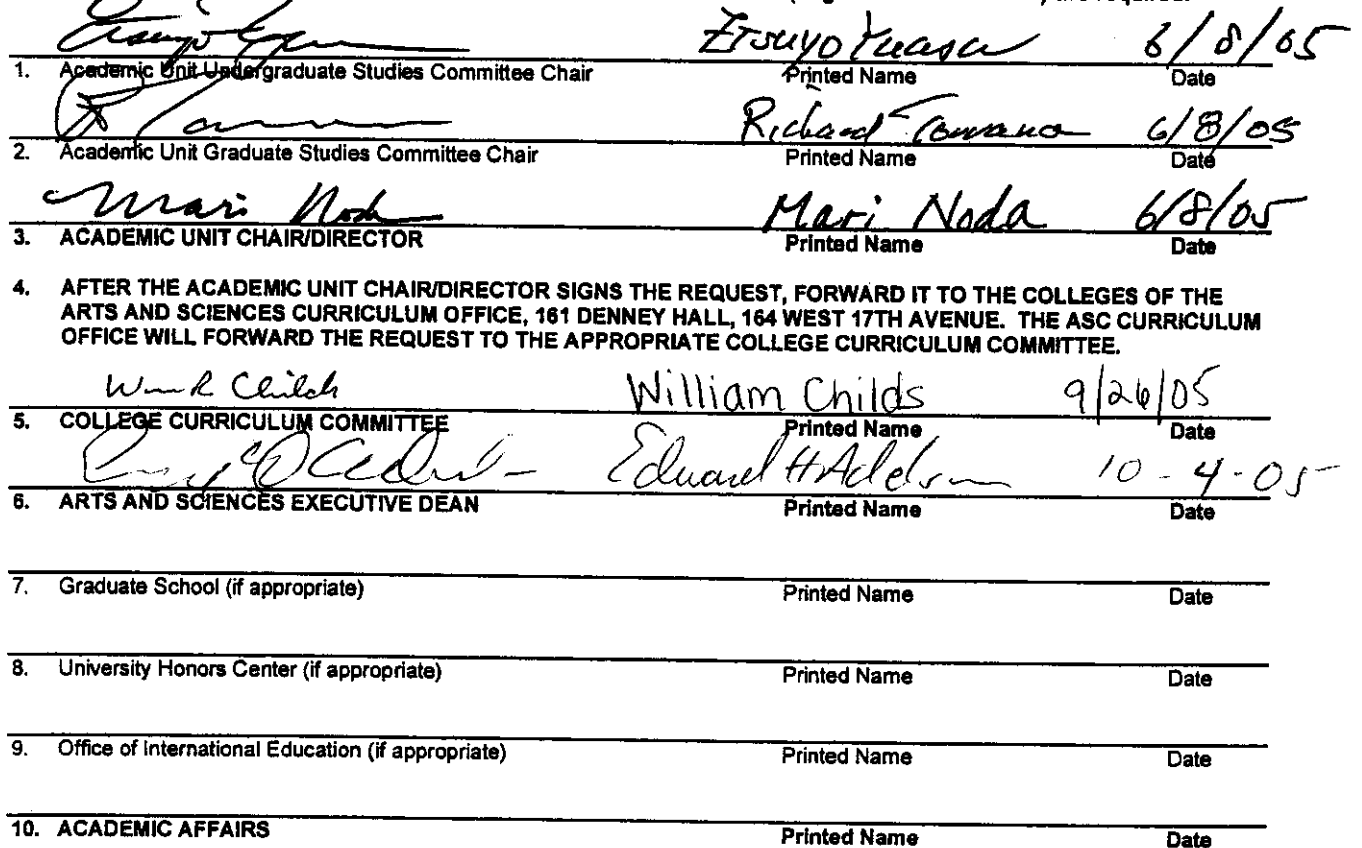 are required.
Etsuyo Yuasa 6/8/05
1. Academic Unit Undergraduate Studies Committee Chair Printed Name Date
Richard 6/8/05
2. Academic Unit Graduate Studies Committee Chair Printed Name Date
Mari Noda Mari Noda 6/8/05
3. ACADEMIC UNIT CHAIR/DIRECTOR Printed Name Date
4. AFTER THE ACADEMIC UNIT CHAIR/DIRECTOR SIGNS THE REQUEST, FORWARD IT TO THE COLLEGES OF THE
ARTS AND SCIENCES CURRICULUM OFFICE, 161 DENNEY HALL, 164 WEST 17TH AVENUE. THE ASC CURRICULUM
OFFICE WILL FORWARD THE REQUEST TO THE APPROPRIATE COLLEGE CURRICULUM COMMITTEE.
Wm R Childs William Childs 9/26/05
5. COLLEGE CURRICULUM COMMITTEE Printed Name Date
Edward H 10-4-05
6. ARTS AND SCIENCES EXECUTIVE DEAN Printed Name Date
7. Graduate School (if appropriate) Printed Name Date
8. University Honors Center (if appropriate) Printed Name Date
9. Office of International Education (if appropriate) Printed Name Date
10. ACADEMIC AFFAIRS Printed Name Date